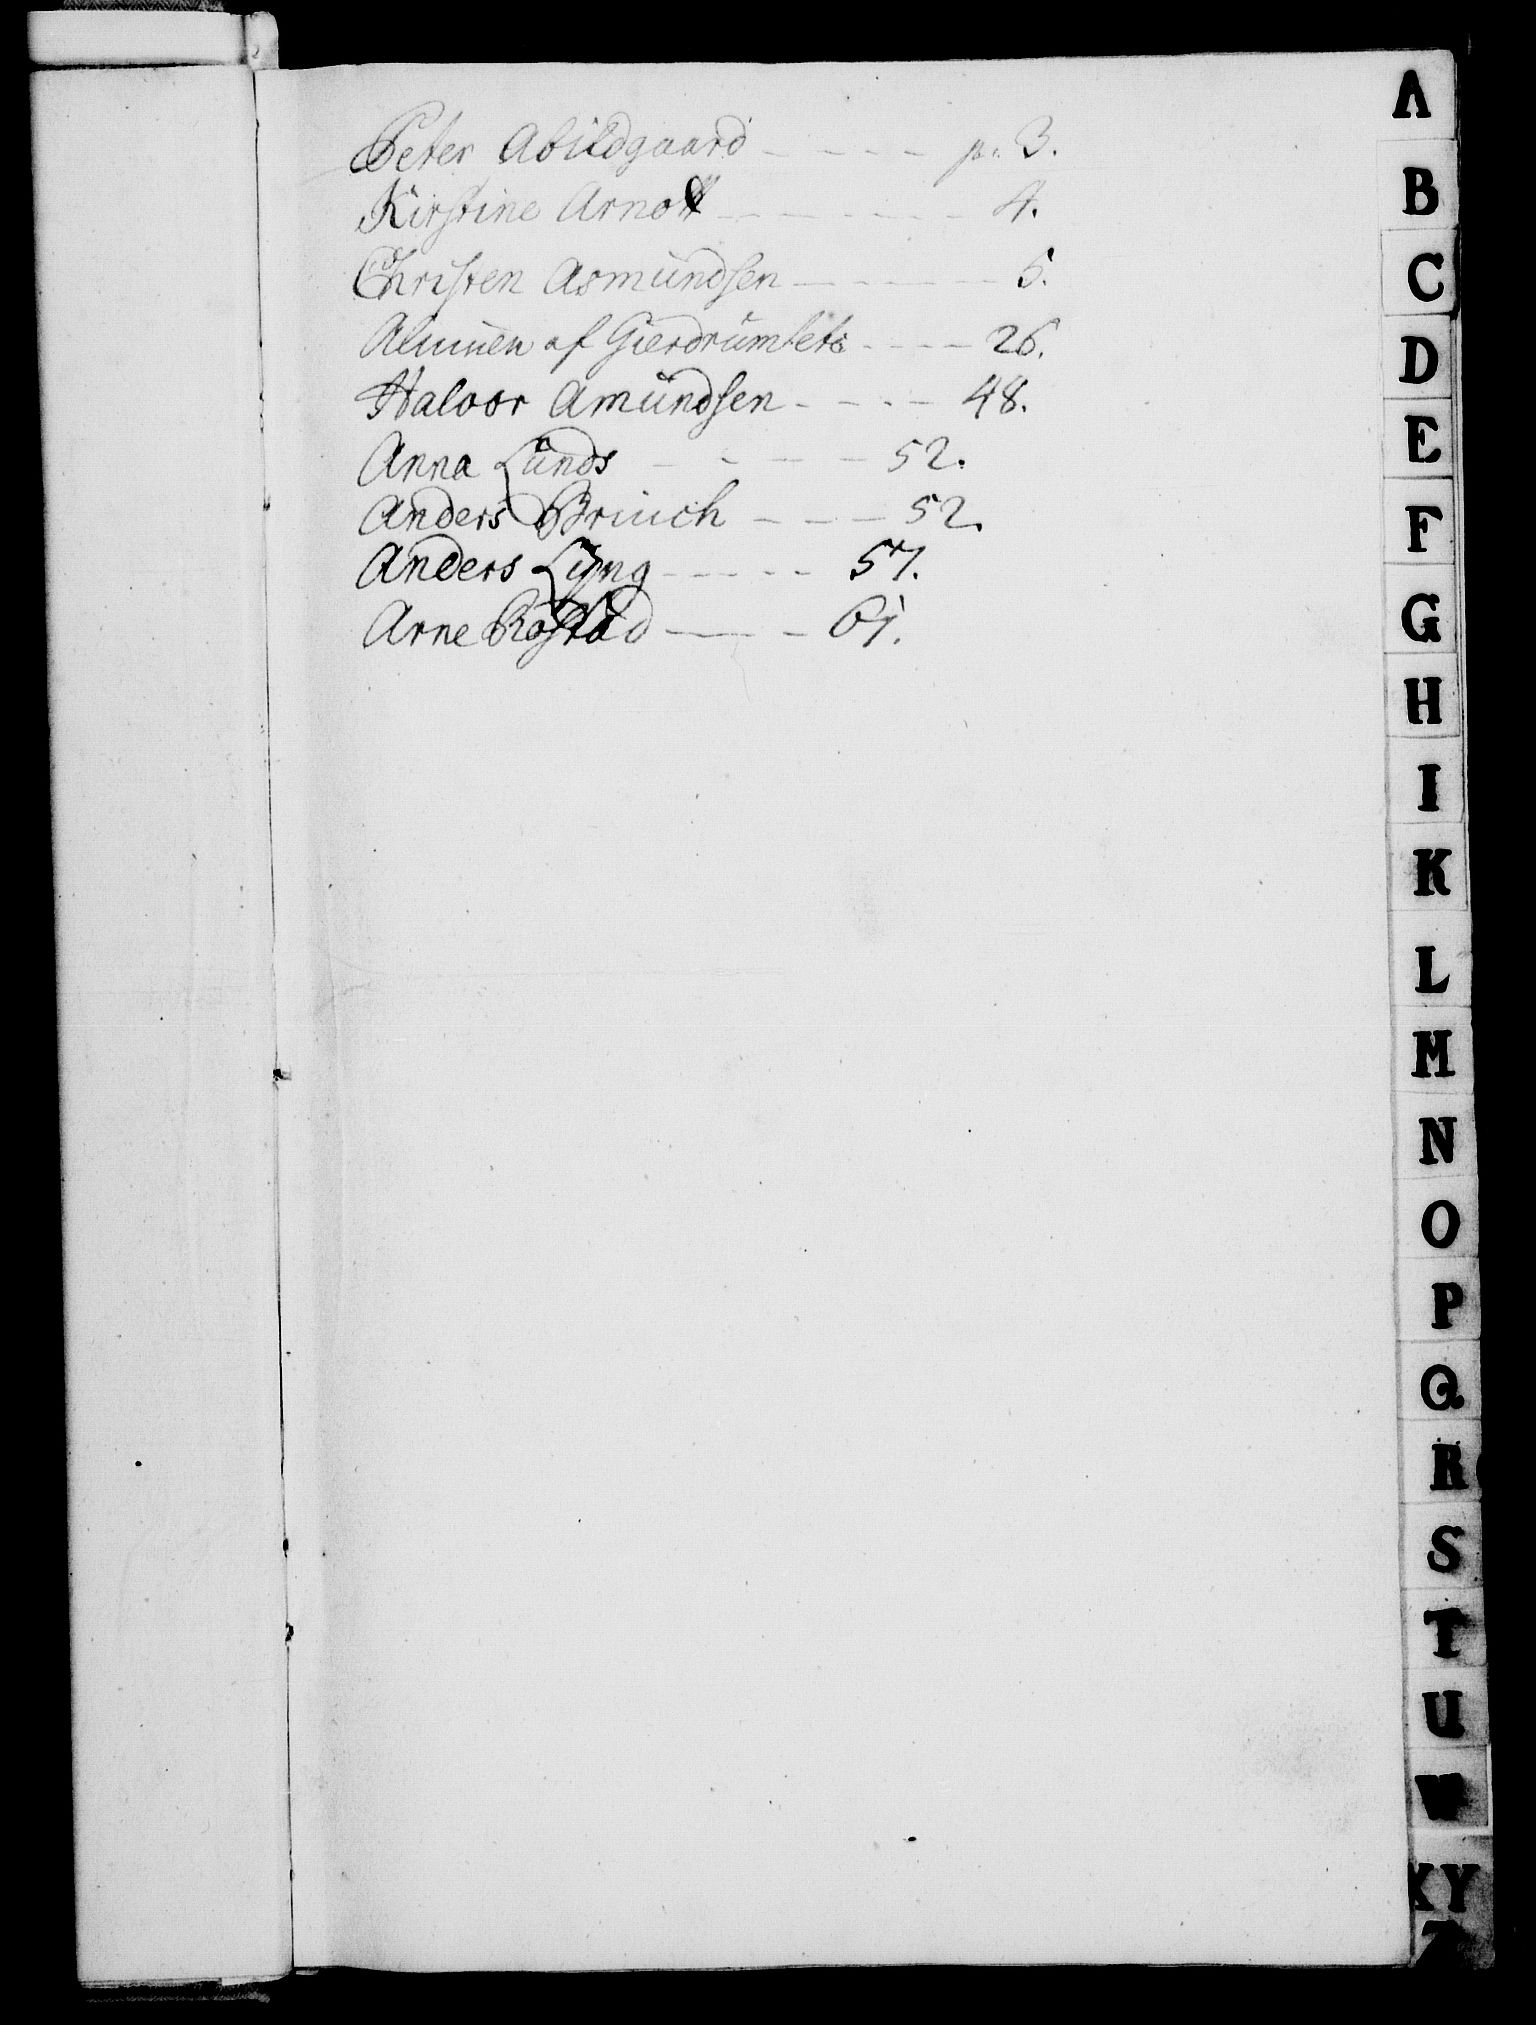 Peter Abildgaard - - - - p: 3.
Kirstine Arnott - - - - - - 4.
Christen Asmundsen - - - - - 5.
af Gierdrum - - - - 26.
Haloor Amundsen - - - - 48.
Anna Lunds - - - - - 52.
Anders Bruuch - - - 52.
Anders Lÿng - - - - - 57.
Arne - - - 61.
A
B
C
D
E
F
G
H
I
K
L
M
N
O
P
Q
R
S
T
U
W
XY
Z